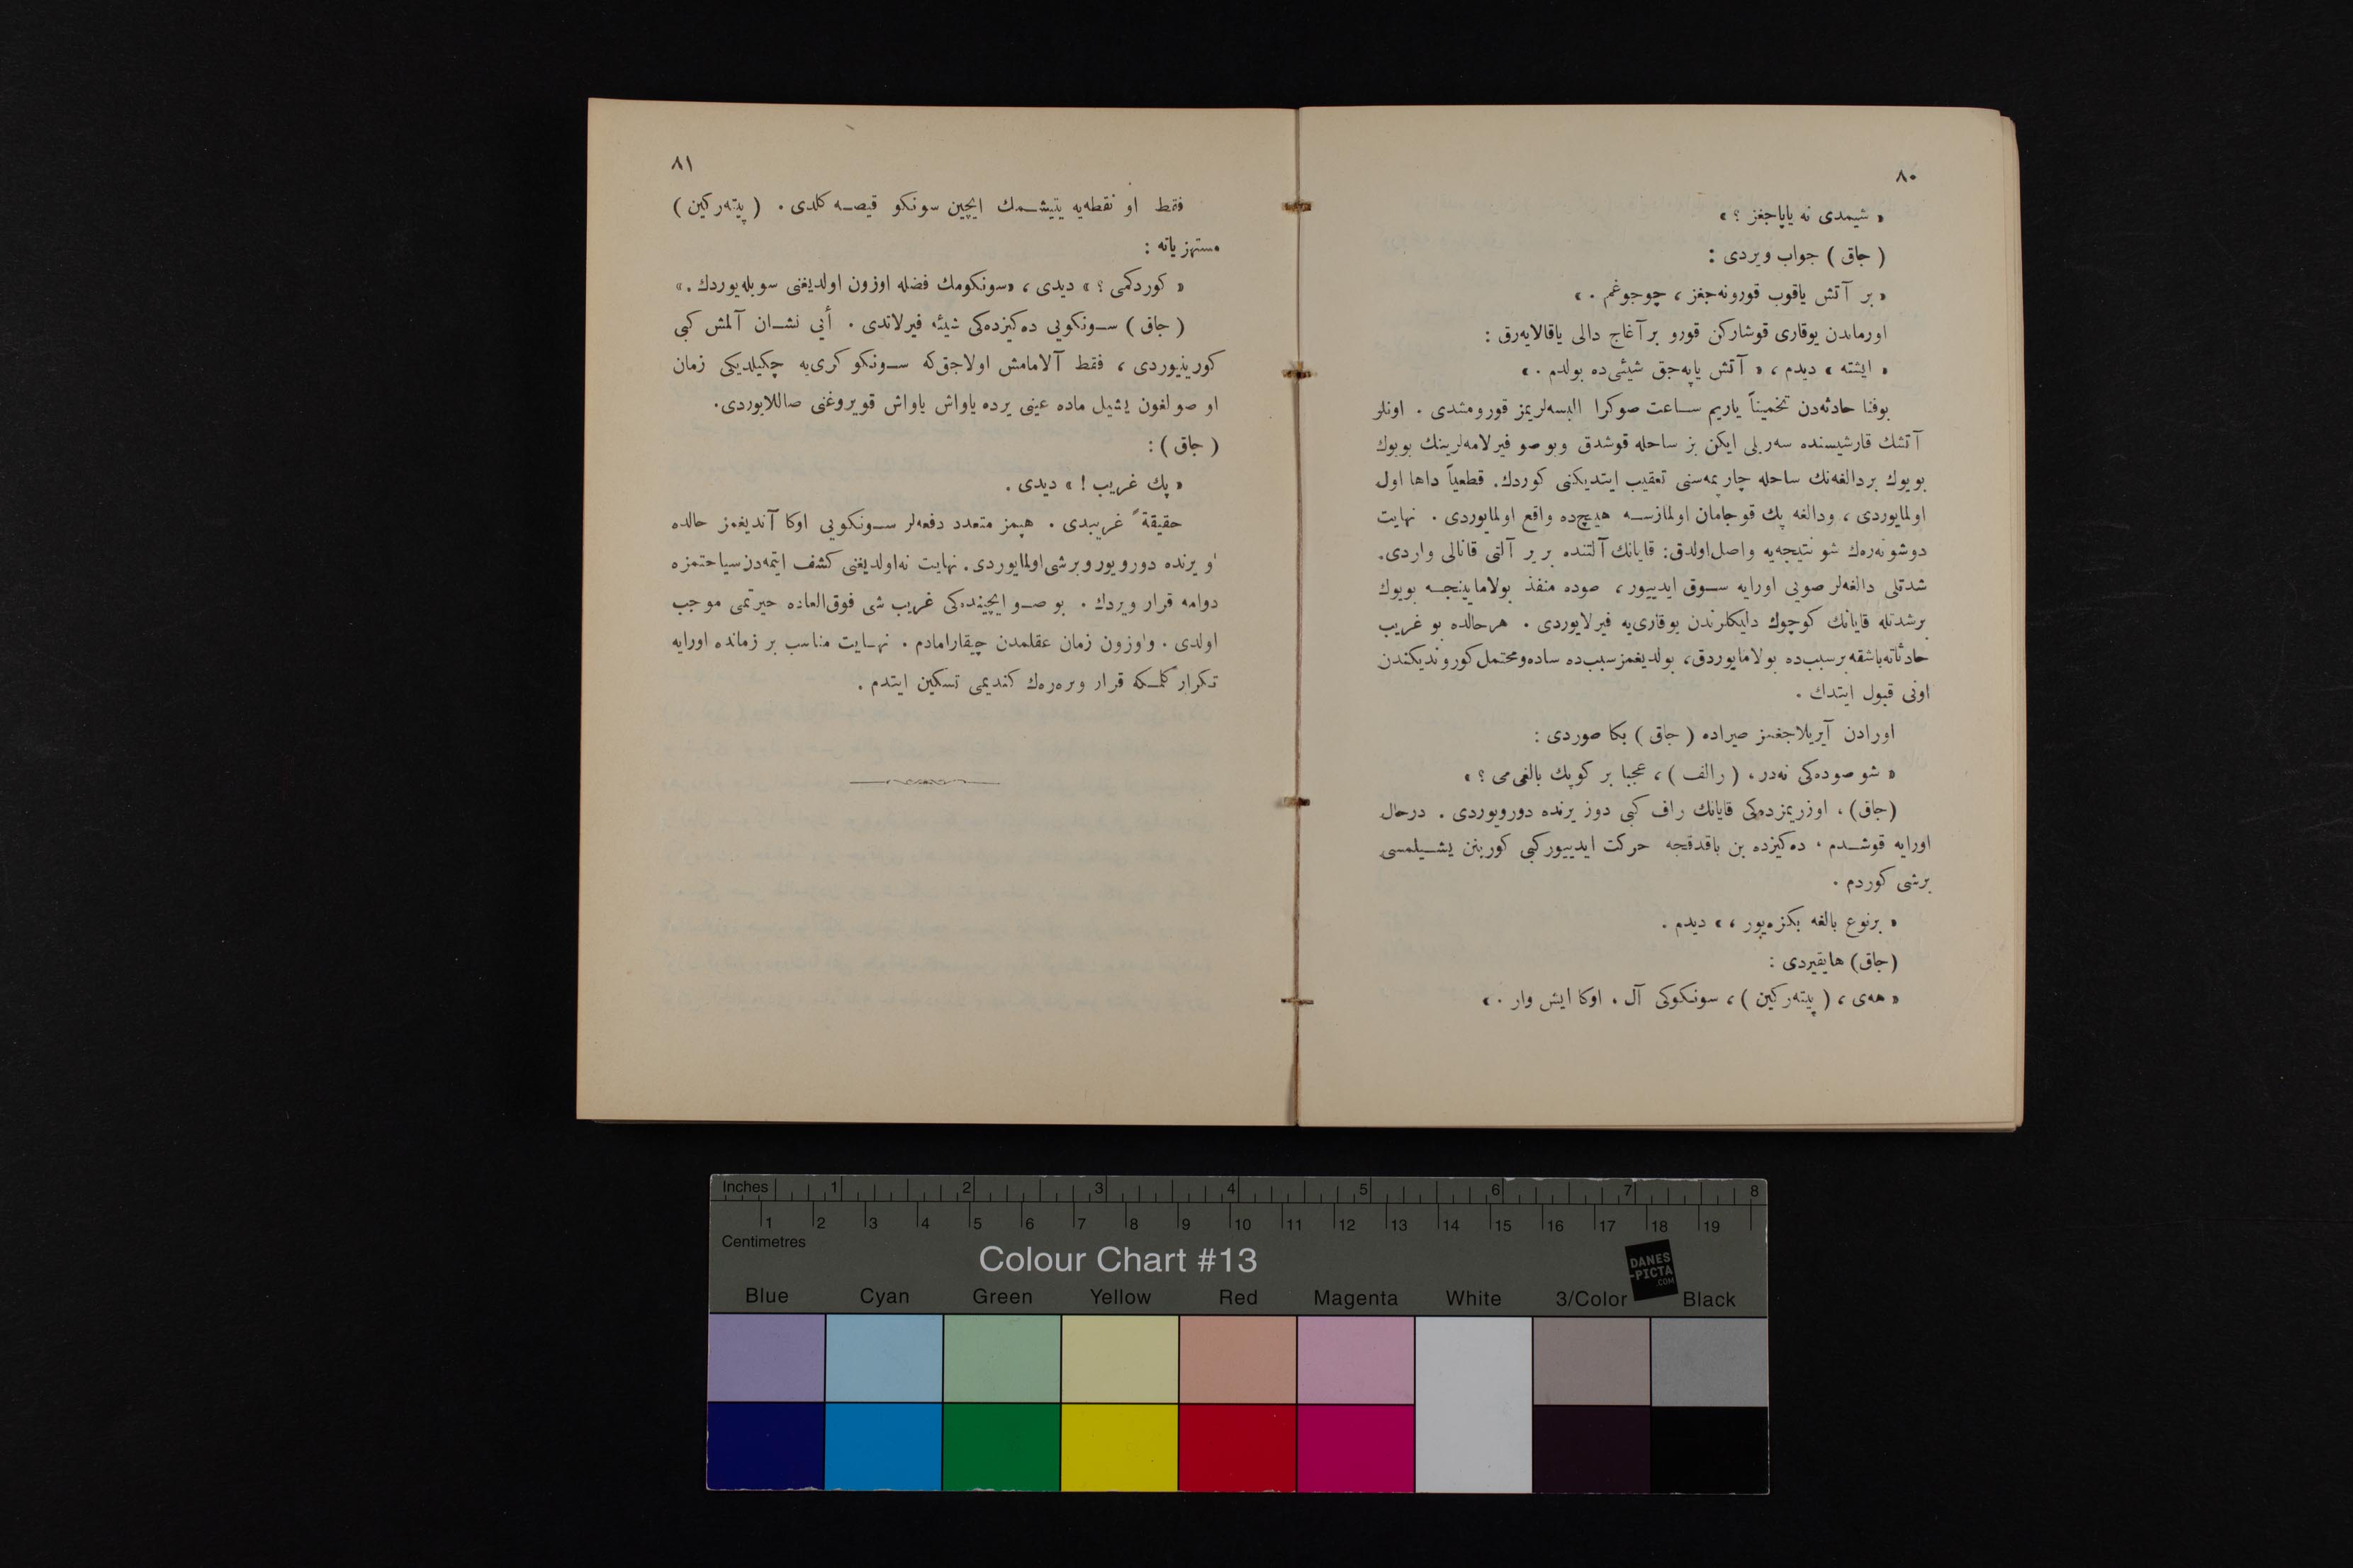 ٨٠
« شیمدی نه یاپاجغز ؟ »
( جاق ) جواب ویردی :
« بر آتش یاقوب قورونه‌جغز ، چوجوغم . »
اورماندن یوقاری قوشارکن قورو بر آغاج دالی یاقالایه‌رق :
« ایشته » دیدم ، « آتش یاپه‌جق شیئی ده بولدم . »
بوفنا حادثه‌دن تخمیناً یاریم ساعت صوکرا البسه‌لریمز قورومشدی . اونلر
آتشك قارشیسنده سه‌ریلی ایکن بز ساحله قوشدق وبو صو فیرلامه‌لرینك بویوك
بویوك بردالغه‌نك ساحله چارپمه‌سنی تعقیب ایتدیکنی کوردك. قطعیاً داها اول
اولمایوردی ، ودالغه پك قوجامان اولمازسه هیچ‌ده واقع اولمایوردی . نهایت
دوشونه‌رك شو نتیجه‌یه واصل‌اولدق: قایانك آلتنده بریر آلتی قانالی واردی.
شدتلی دالغه‌لر صویی اورایه سوق ایدییور ، صوده منفذ بولامایینجه بویوك
برشدتله قایانك کوچوك دلیکلرندن یوقاری‌یه فیرلایوردی . هرحالده بو غریب
حادثاته باشقه برسبب‌ده بولامایوردق، بولدیغمز سبب‌ده ساده ومحتمل کوروندیکندن
اونی قبول ایتدك .
اورادن آیریلاجغمز صیراده ( جاق ) بکا صوردی :
« شو صوده‌کی نه‌در ، ( رالف ) ، عجبا بر کوپك بالغی‌می ؟ »
(جاق) ، اوزریمزده‌کی قایانك راف کبی دوز یرنده دورویوردی . درحال
اورایه قوشدم ، ده‌کیزده بن باقدقجه حرکت ایدییور کبی کورینن یشیلمسی
برشی کوردم .
« برنوع بالغه بکزه‌یور ، » دیدم .
(جاق) هایقیردی :
« هه‌ی ، ( پیته‌رکین ) ، سونکوکی آل . اوکا ایش وار . »
٨١
فقط او نقطه‌یه یتیشمك ایچین سونکو قیصه کلدی . ( پیته‌رکین )
مستهزیانه :
« کوردکمی ؟ » دیدی ، «سونکومك فضله اوزون اولدیغنی سویله‌یوردك .»
( جاق ) سونکویی ده‌کیزده‌کی شیئه فیرلاتدی . أیی نشان آلمش کبی
کورینیوردی ، فقط آلامامش اولاجق‌که سونکو کری‌یه چکیلدیکی زمان
او صولغون یشیل ماده عینی یرده یاواش یاواش قویروغنی صاللایوردی.
( جاق ) :
« پك غریب ! » دیدی .
حقیقةً غریبدی . هپمز متعدد دفعه‌لر سونکویی اوکا آندیغمز حالده
او یرنده دورویور وبرشی اولمایوردی. نهایت نه اولدیغنی کشف ایتمه‌دن سیاحتمزه
دوامه قرار ویردك . بو صو ایچینده‌کی غریب شی فوق‌العاده حیرتمی موجب
اولدی . واوزون زمان عقلمدن چیقارامادم . نهایت مناسب بر زمانده اورایه
تکرار کلمکه قرار ویره‌رك کندیمی تسکین ایتدم .
Inches 1 2 3 4 5 6 7 8
1 2 3 4 5 6 7 8 9 10 11 12 13 14 15 16 17 18 19
Centimetres
Colour Chart #13
DANES
-PICTA
.COM
Blue Cyan Green Yellow Red Magenta White 3/Color Black